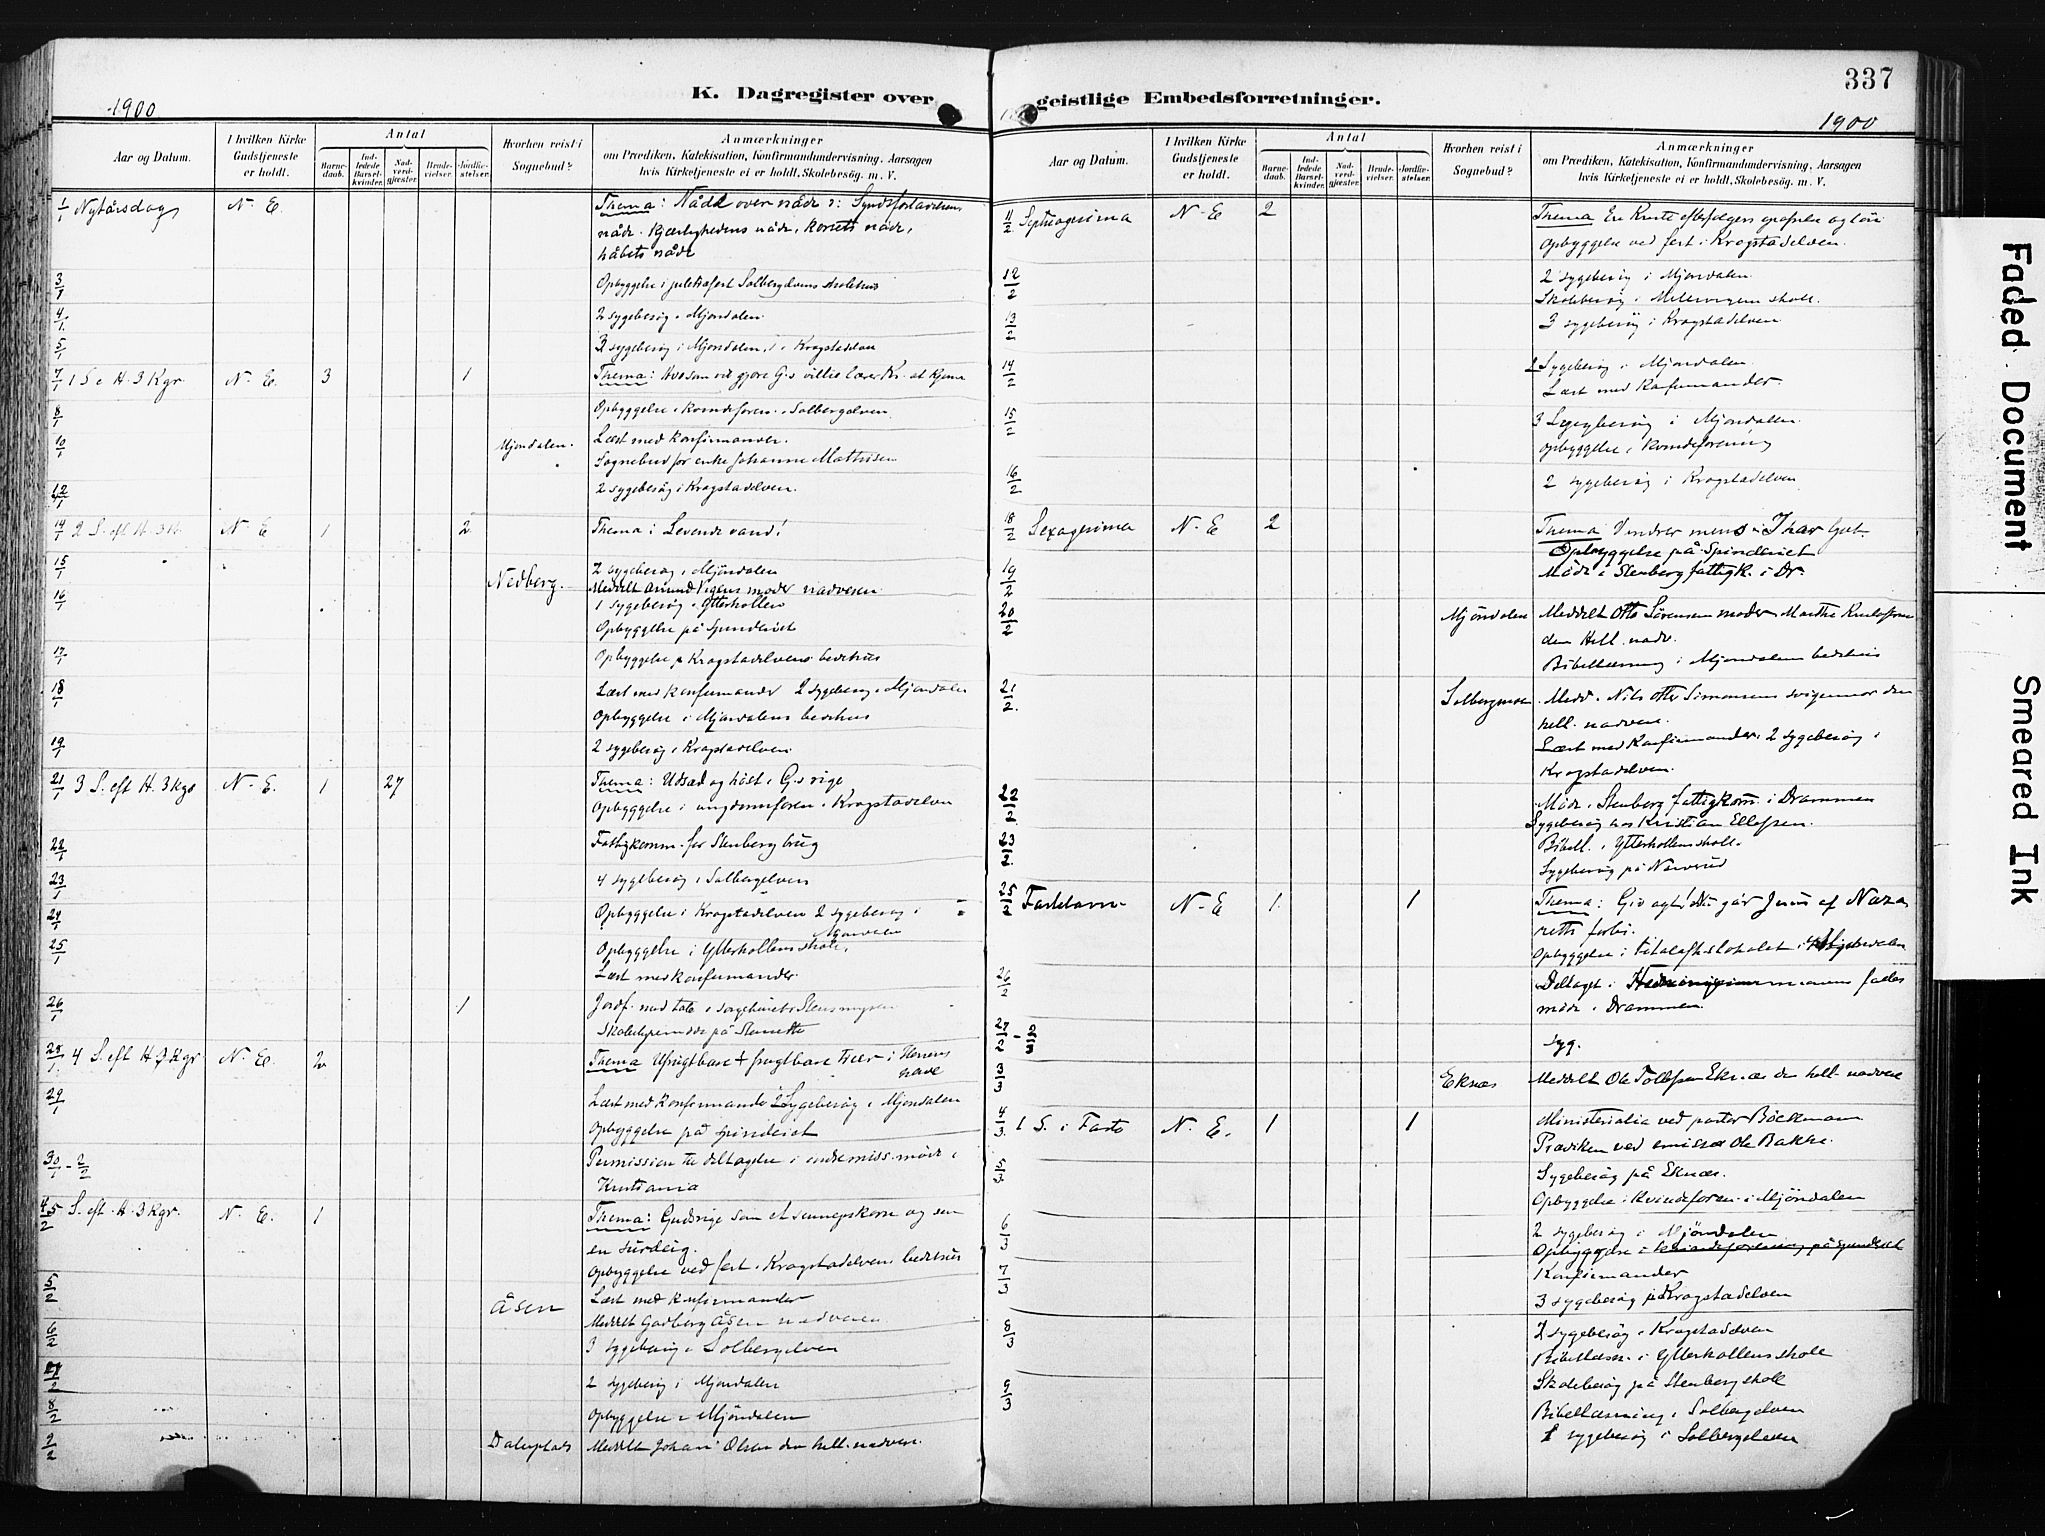 337
K. Dagregister over geistlige Embedsforretninger.
1900
1900
Aar og Datum.
I hvilken Kirke Gudstjeneste er holdt.
Antal
Barnedaab.
Indledede Barselkvinder.
Nadverdgjæster.
Brudevielser.
Jordfæstelser.
Hvorhen reist i Sognebud?
Anmærkninger
om Prædiken, Katekisation, Konfirmandundervisning, Aarsagen
hvis Kirketjeneste ei er holdt, Skolebesøg. m. V.
1/1 Nytårsdag N. E. Thema: Nåde over nåde
nåde. Kjærlighedens nåde, korsets nåde,
håbets nåde
3/1 Opbyggelse i juletræfest Solbergelvens skolehus
4/1 2 sygebesøg i Mjøndalen
5/1 2 sygebesøg i Mjøndalen, 1 i Krogstadelven
7/1 1 S e H. 3 Kgr. N. E. 3 1 Thema: Hvo som vil gjøre G.s villie
8/1 Opbyggelse i kvindeforen. i Solbergelven
10/1 Mjøndalen. Læst med konfirmander.
Sognebud for enke Johanne Mathisen
12/1 2 sygebesøg i Krogstadelven.
14/1 2 S. eft H. 3 K. N. E 1 2 Thema: Levende vand!
15/1 2 sygebesøg i Mjøndalen
Nedberg. Meddelt Amund Vegens moder nadveren
16/1 1 sygebesøg i Ytterkollen
Opbyggelse på Spinderiet
17/1 Opbyggelse på Krogstadelvens bedehus
18/1 Læst med konfirmander 2 sygebesøg i Mjøndalen
Opbyggelse i Mjøndalens bedehus
19/1 2 sygebesøg i Krogstadelven
21/1 3 S. eft H. 3 kgr N. E. 1 27 Thema: Udsæd og høst i G.s rige
Opbyggelse i ungdomsforen. i Krogstadelven
22/1 Fattigkomm. for Stenberg brug
23/1 4 sygebesøg i Solbergelven
24/1 Opbyggelse i Krogstadelven 2 sygebesøg i
25/1 Opbyggelse i Ytterkollens skole.
Læst med konfirmander.
26/1 1 Jordf. med tale i sørgehuset Stensmyren
28/1 4 S. eft H 3 Kgr N. E. 2 Thema Ufrugtbare + frugtbare træer i Herrens
have
29/1 Læst med konfirmander 2 sygebesøg i Mjøndalen
Opbyggelse på spinderiet
30/1 - 2/2 Permission til deltagelse i indremiss. møde i
Kristiania
4/2 5 S. eft. H. 3 Kgr. N. E. 1 Thema: Gudsrige som et sennepskorn og som
en surdeig.
Opbyggelse ved fest i Krogstadelvens bedehus
5/2 Læst med konfirmander
Åsen Meddelt Gudberg Åsen nadveren
6/2 3 sygebesøg i Solbergelven
7/2 2 sygebesøg i Mjøndalen
8/2 Opbyggelse i Mjøndalen
Meddelt Johan Olsen den hell. nadvere.
Aar og Datum.
I hvilken Kirke Gudstjeneste er holdt.
Antal
Barnedaab.
Indledede Barselkvinder.
Nadverdgjæster.
Brudevielser.
Jordfæstelser.
Hvorhen reist i Sognebud?
Anmærkninger
om Prædiken, Katekisation, Konfirmandundervisning, Aarsagen
hvis Kirketjeneste ei er holdt, Skolebesøg. m. V.
11/2 Septuagesima N-E 2 Thema
Opbyggelse ved fest i Krogstadelven.
12/2 2 sygebesøg i Mjøndalen
Skolebesøg i skole.
13/2 3 sygebesøg i Krogstadelven
14/2 2 Sygebesøg i Mjøndalen
Læst med Konfirmander.
15/2 3 Sygebesøg i Mjøndalen
opbyggelse i kvindeforening
16/2 2 sygebesøg i Krogstadelven
18/2 Sexagesima N-E 2 Thema
Opbyggelse på Spinderiet
19/2 Møde i Stenberg fattigk. i Dr.
20/2 Mjöndalen Meddelt Otto Sørensens moder Marthe
den Hell. nadv.
Bibellæsning i Mjøndalens bedehus
21/2 Solbergmoen Medd. Nils Otto Simonsens svigermor den
hell. nadvere.
Læst med Konfirmander. 2 sygebesøg i
Krogstadelven.
22/2 Møde i Stenberg fattigkom. i Drammen
Sygebesøg hos Kristian Ellefsen.
23/2 Bibell. i Ytterkollens skole.
Sygebesøg på Narverud
25/2 Fastelavn N-E 1 1 Thema: Giv agt! Nu går Jesus af Naza
reth forbi.
26/2 Deltaget i
møde i Drammen
27/2 - 2/3 syg.
3/3 Eknæs Meddelt Ole Tollefsen Eknæs den hell. nadvere
4/3 1 S. i Faste N. E. 1 1 Ministerialia ved pastor Böckmann
Præiken ved emissær Ole Bakke.
5/3 Sygebesøg på Eknæs.
Opbyggelse i Kvindeforen. i Mjöndalen
6/3 2 sygebesøg i Mjöndalen
Opbyggelse i kvindeforening på spinderiet
7/3 Konfirmander
3 sygebesøg på Krogstadelven
8/3 2 sygebesøg i Krogstadelven
Bibellæsn. i Ytterkollens skole
9/3 Skolebesøg på Stenberg skole
Bibellæsning i Solbergelven
1 sygebesøg i Solbergelven
Faded Document
Smeared Ink